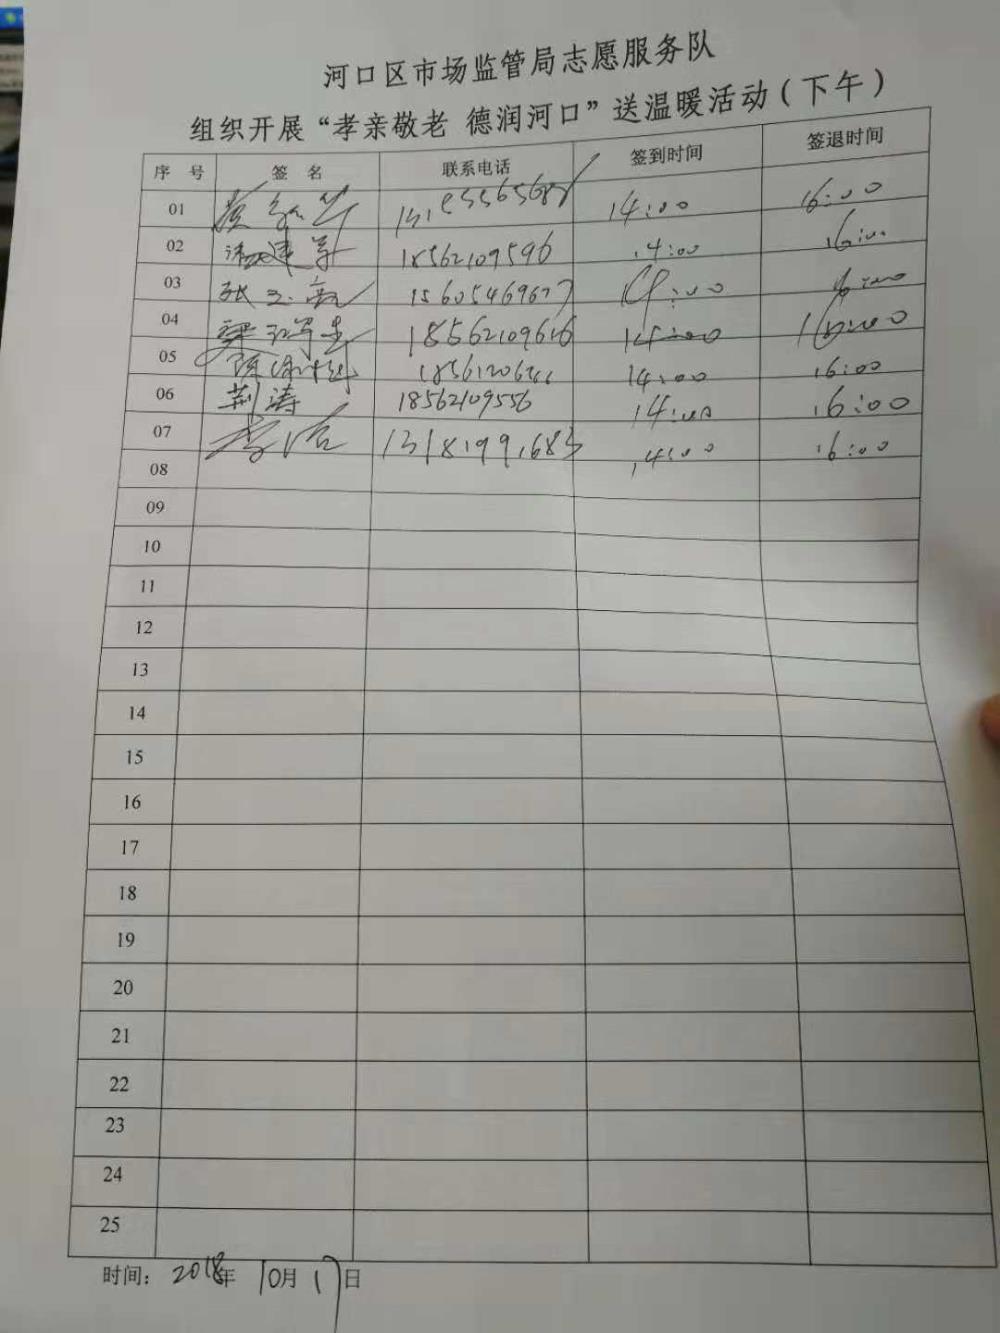 河口区市场监管局志愿服务队
组织开展“孝亲敬老 德润河口”送温暖活动(下午)
序 号 签 名 联系电话 签到时间 签退时间
01 14:00 16:00
02 18562109596 14:00 16:00
03 张 15605469677 14:00 16:00
04 18562109616 14:00 16:00
05 14:00 16:00
06 荆涛 18562109556 14:00 16:00
07 李 14:00 16:00
08
09
10
11
12
13
14
15
16
17
18
19
20
21
22
23
24
25
时间: 2018年 10月 17日